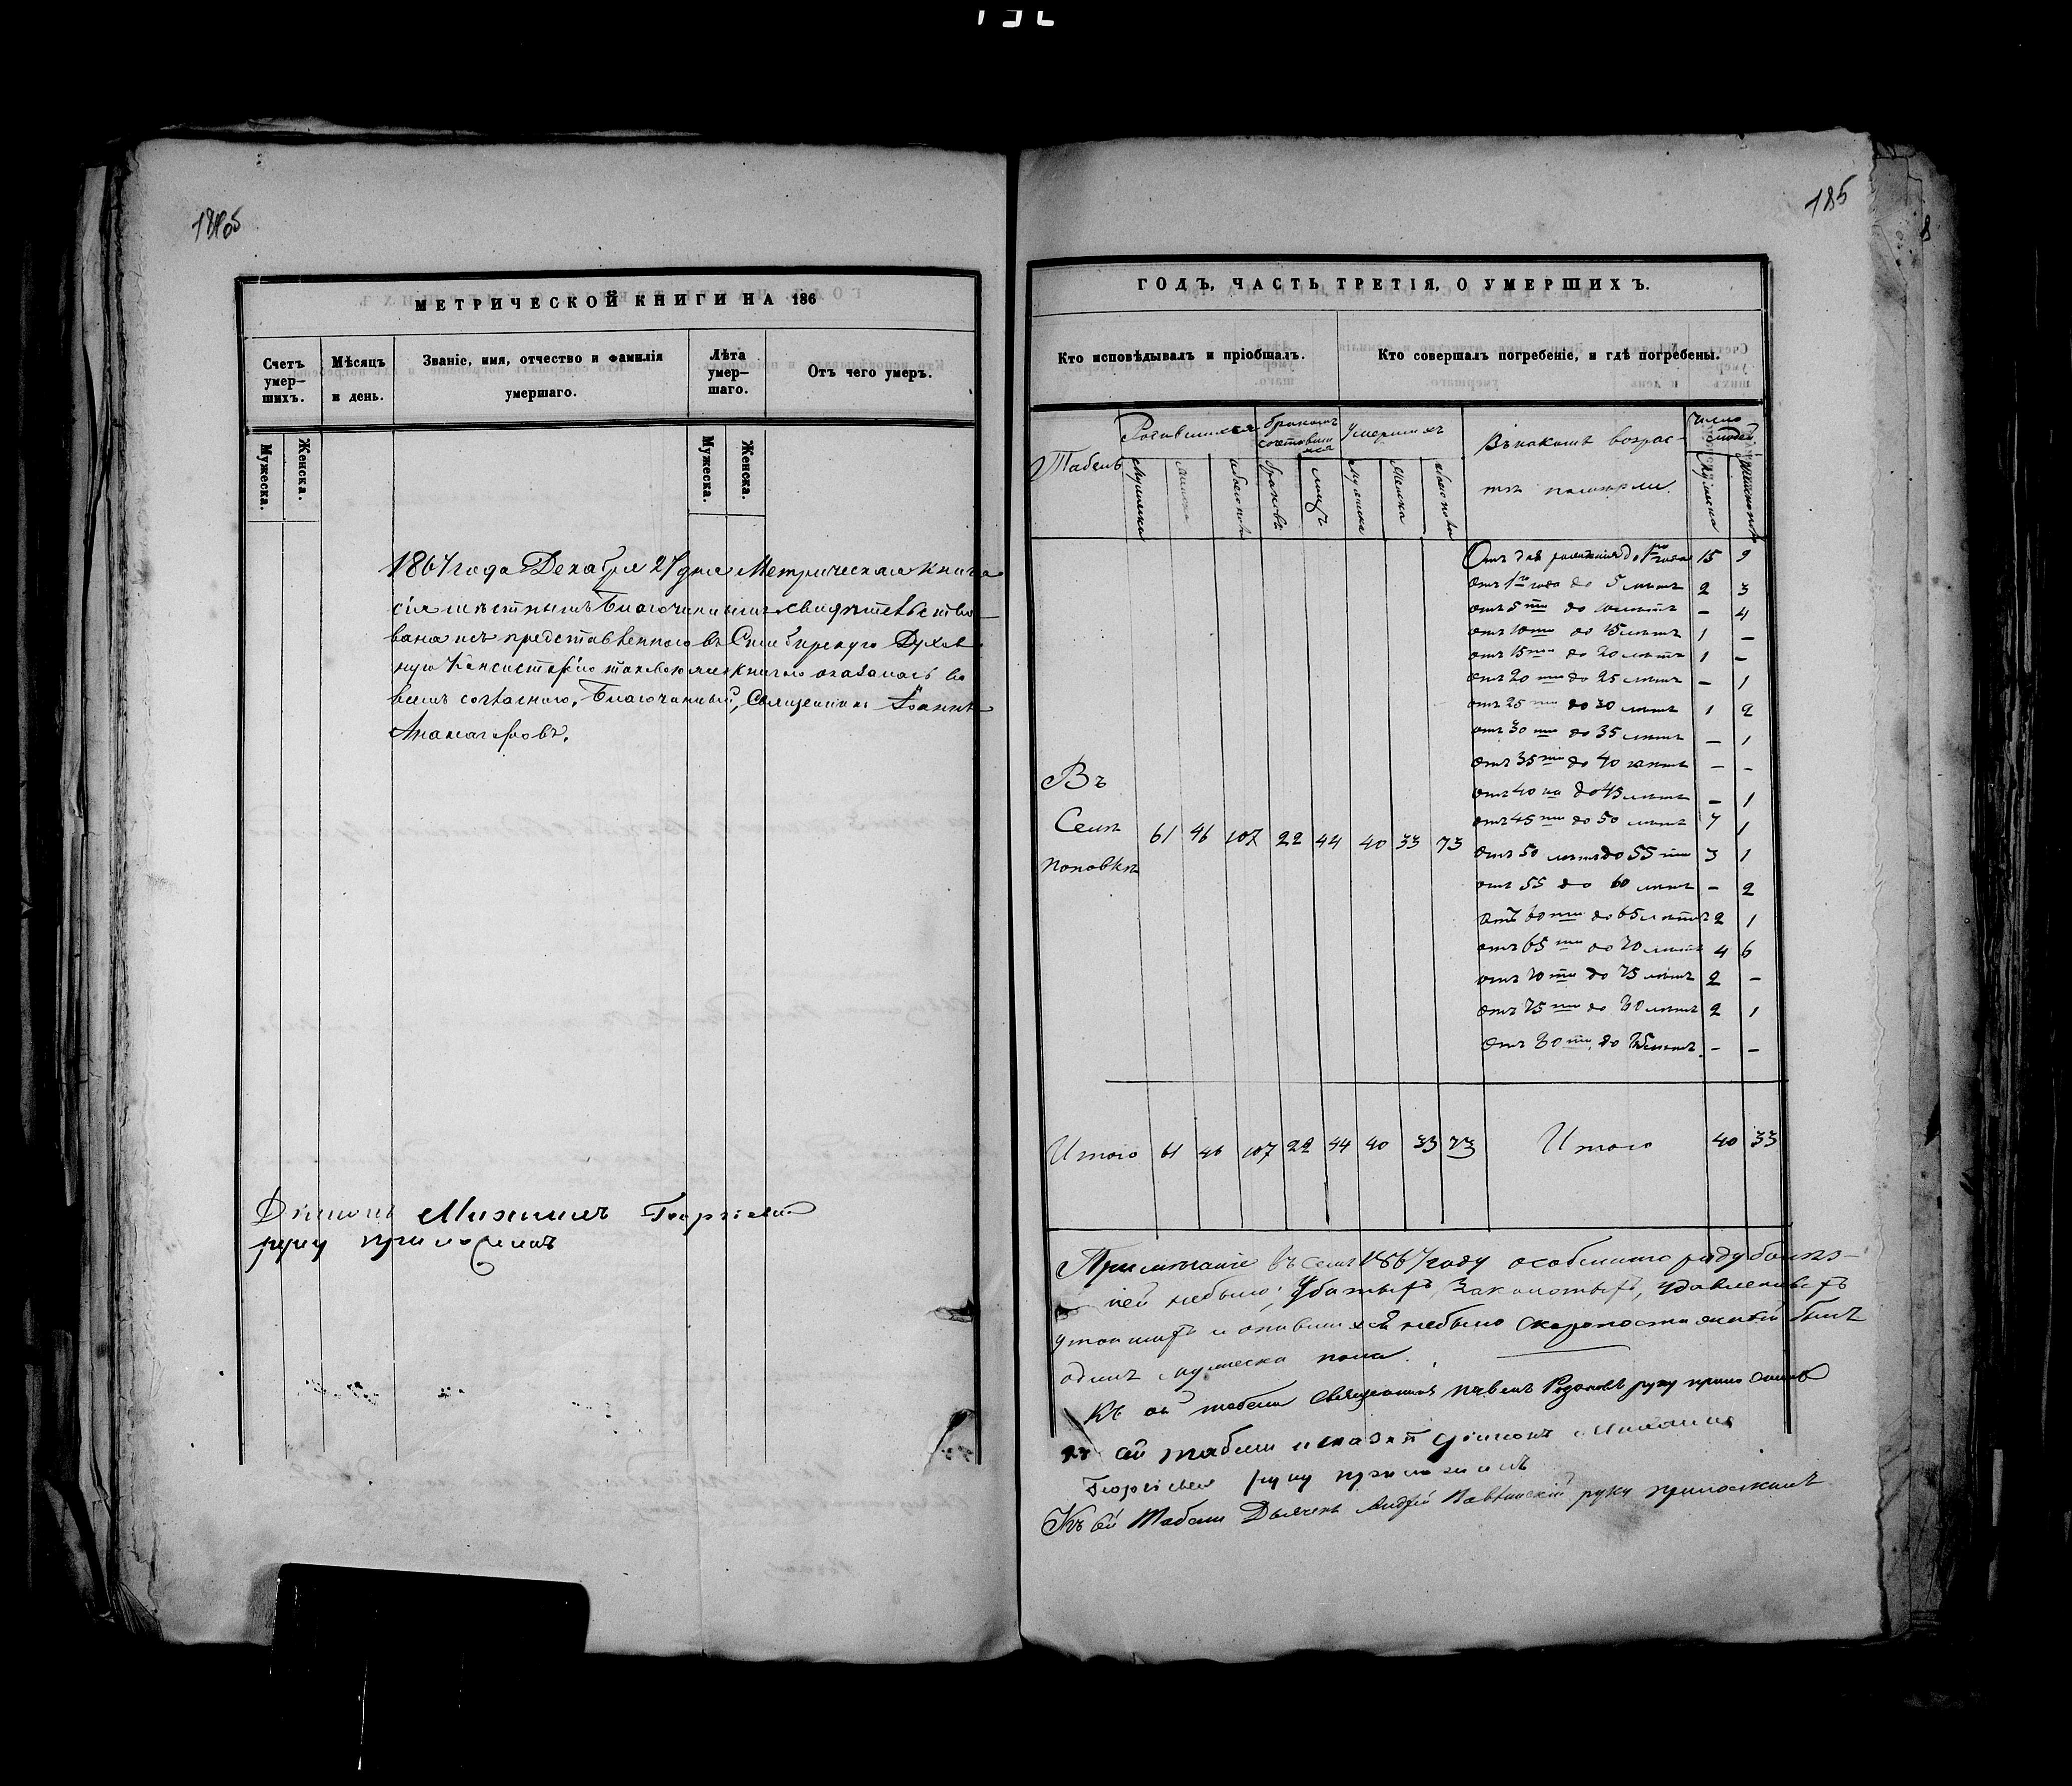 185
185
8
МЕТРИЧЕСКОЙ КНИГИ НА 186
Счетъ умер-шихъ.
Мѣсяцъ и день.
Званіе, имя, отчество и фамилія умершаго.
Лѣта умер-шаго.
Отъ чего умеръ.
Мужеска.
Женска.
Мужеска.
Женска.
1867 года Декабря 27 дня Метрическая книга
сія мѣстнымъ Благочиннымъ свидѣтельство-
вана и съ представленною въ Симбирскую Духов
ную Консисторію таковою же книгою оказалась во
всемъ согласною. Благочинный, Священникъ Іоаннъ
Анаксагоровъ.
Діаконъ Михаилъ Георгіевъ
руку приложилъ
ГОДЪ, ЧАСТЬ ТРЕТІЯ, О УМЕРШИХЪ.
Кто исповѣдывалъ и пріобщалъ.
Кто совершалъ погребеніе, и гдѣ погребены.
Табель
Родившихся
бракомъ сочетавши мся
Умершихъ
Въ какихъ возрас-
тѣ померли.
число людей
Мужеска
Женска
обоего пола
браковъ
лицъ
Мужеска
Женска
обоего пола
Мужеска
Женска
Отъ дня рожденія до 1го года 15 9
отъ 1го года до 5 лѣтъ 2 3
отъ 5ти до 10 лѣтъ – 4
отъ 10ти до 15 лѣтъ 1 –
отъ 15ти до 20 лѣтъ 1 –
отъ 20ти до 25 лѣтъ – 1
отъ 25ти до 30 лѣтъ 1 2
отъ 30ти до 35 лѣтъ – 1
отъ 35ти до 40 лѣтъ – –
отъ 40ка до 45 лѣтъ – 1
отъ 45ти до 50 лѣтъ 7 1
отъ 50 лѣтъ до 55ти 3 1
отъ 55 до 60 лѣтъ – 2
отъ 60ти до 65 лѣтъ 2 1
отъ 65ти до 70 лѣтъ 4 6
отъ 70ти до 75 лѣтъ 2 –
отъ 75ти до 80 лѣтъ 2 1
отъ 80ти до 85 лѣтъ. – –
Въ
Селѣ
Поповкѣ
61 46 107 22 44 40 33 73
Итого 61 46 107 22 44 40 33 73 Итого 40 33
Примѣчаніе въ семъ 1867 году особеннаго роду болѣз-
ней небыло; Убатыхъ, Заколотыхъ, удавленныхъ
утопшихъ и опившихся небыло скоропостижный былъ
одинъ мужеска пола.
Къ сей табели Священникъ Павелъ руку приложилъ
Къ сей табели и сказкѣ Діаконъ Михаилъ
Георгіевъ руку приложилъ
Къ сей Табели Дьячекъ Андрей руку приложилъ